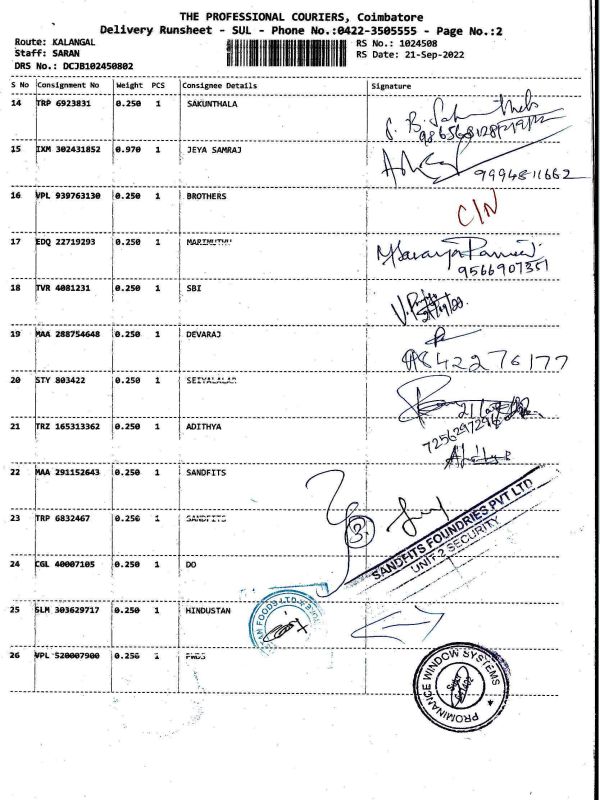 THE PROFESSIONAL COURIERS, Coimbatore
Delivery Runsheet - SUL - Phone No.:0422-3505555 - Page No.:2
Route: KALANGAL
RS No.: 1024508
Staff: SARAN
RS Date: 21-Sep-2022
DRS No.: DCJB102450802
S No Consignment No Weight PCS Consignee Details Signature
14 TRP 6923831 0.250 1 SAKUNTHALA
15 IXM 302431852 0.970 1 JEYA SAMRAJ
9994811662
16 VPL 939763130 0.250 1 BROTHERS
C/N
17 EDQ 22719293 0.250 1 MARIMUTHU
9566907351
18 TVR 4081231 0.250 1 SBI
19 MAA 288754648 0.250 1 DEVARAJ
9842276177
20 STY 803422 0.250 1
7256297296
21 TRZ 165313362 0.250 1 ADITHYA
22 MAA 291152643 0.250 1 SANDFITS
23 TRP 6832467 0.250 1 SANDFITS
3.
SANDFITS FOUNDRIES PVT LTD
UNIT-2 SECURITY
24 CGL 40007105 0.250 1 DO
25 SLM 303629717 0.250 1 HINDUSTAN
26 VPL 520007900 0.250 1
PROMINANCE WINDOW SYSTEMS